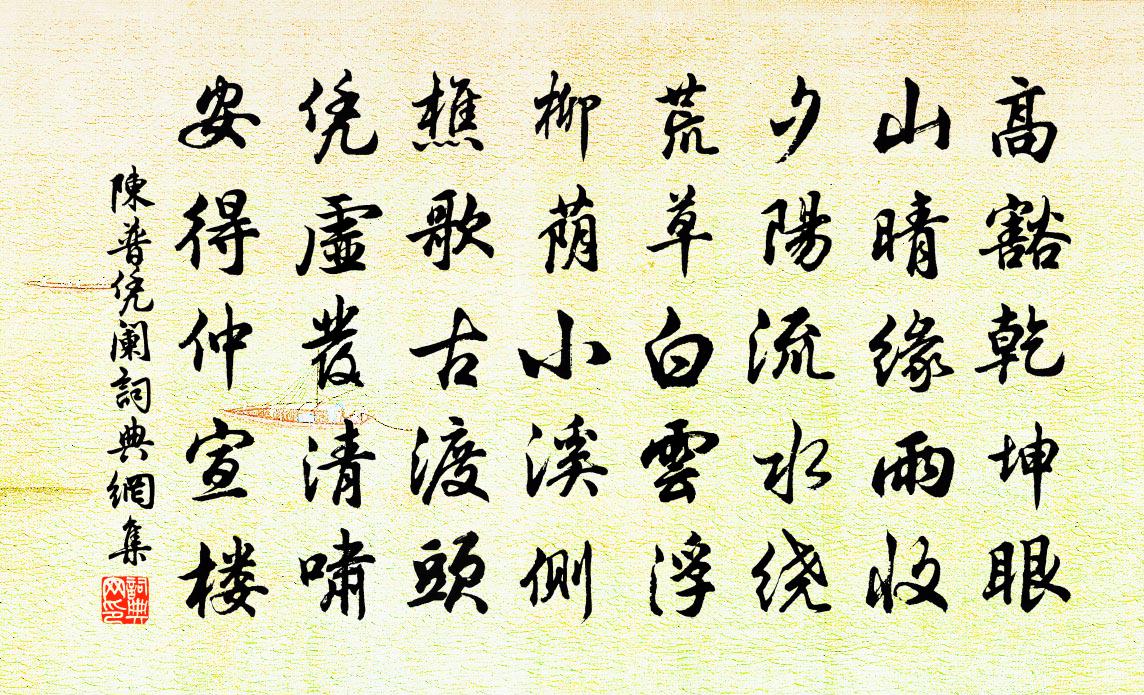 高豁乾坤眼
山晴缘雨收
夕陽流水绕
荒草白雲浮
柳荫小溪側
樵歌古渡頭
凭虛發清啸
安得仲宣楼
陳普凭阑詞典網集
詞典网印